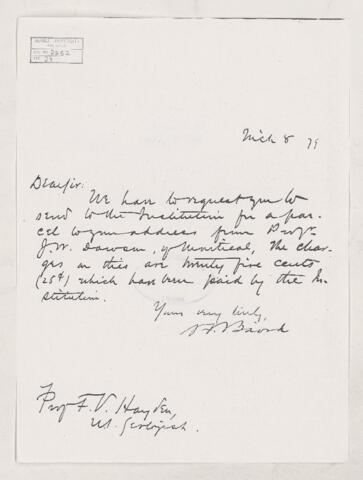 Mch 8 79
Dear Sir:
We have to request you to
send to the Institution for a par-
cel to your address from Prof
J.W. Dawson, of Montreal, The char-
ges on this are twenty five cents
(25¢) which have been paid by the In-
stitution.
Yours very truly,
S F Baird
Prof F. V. Hayden,
US. Geologist.